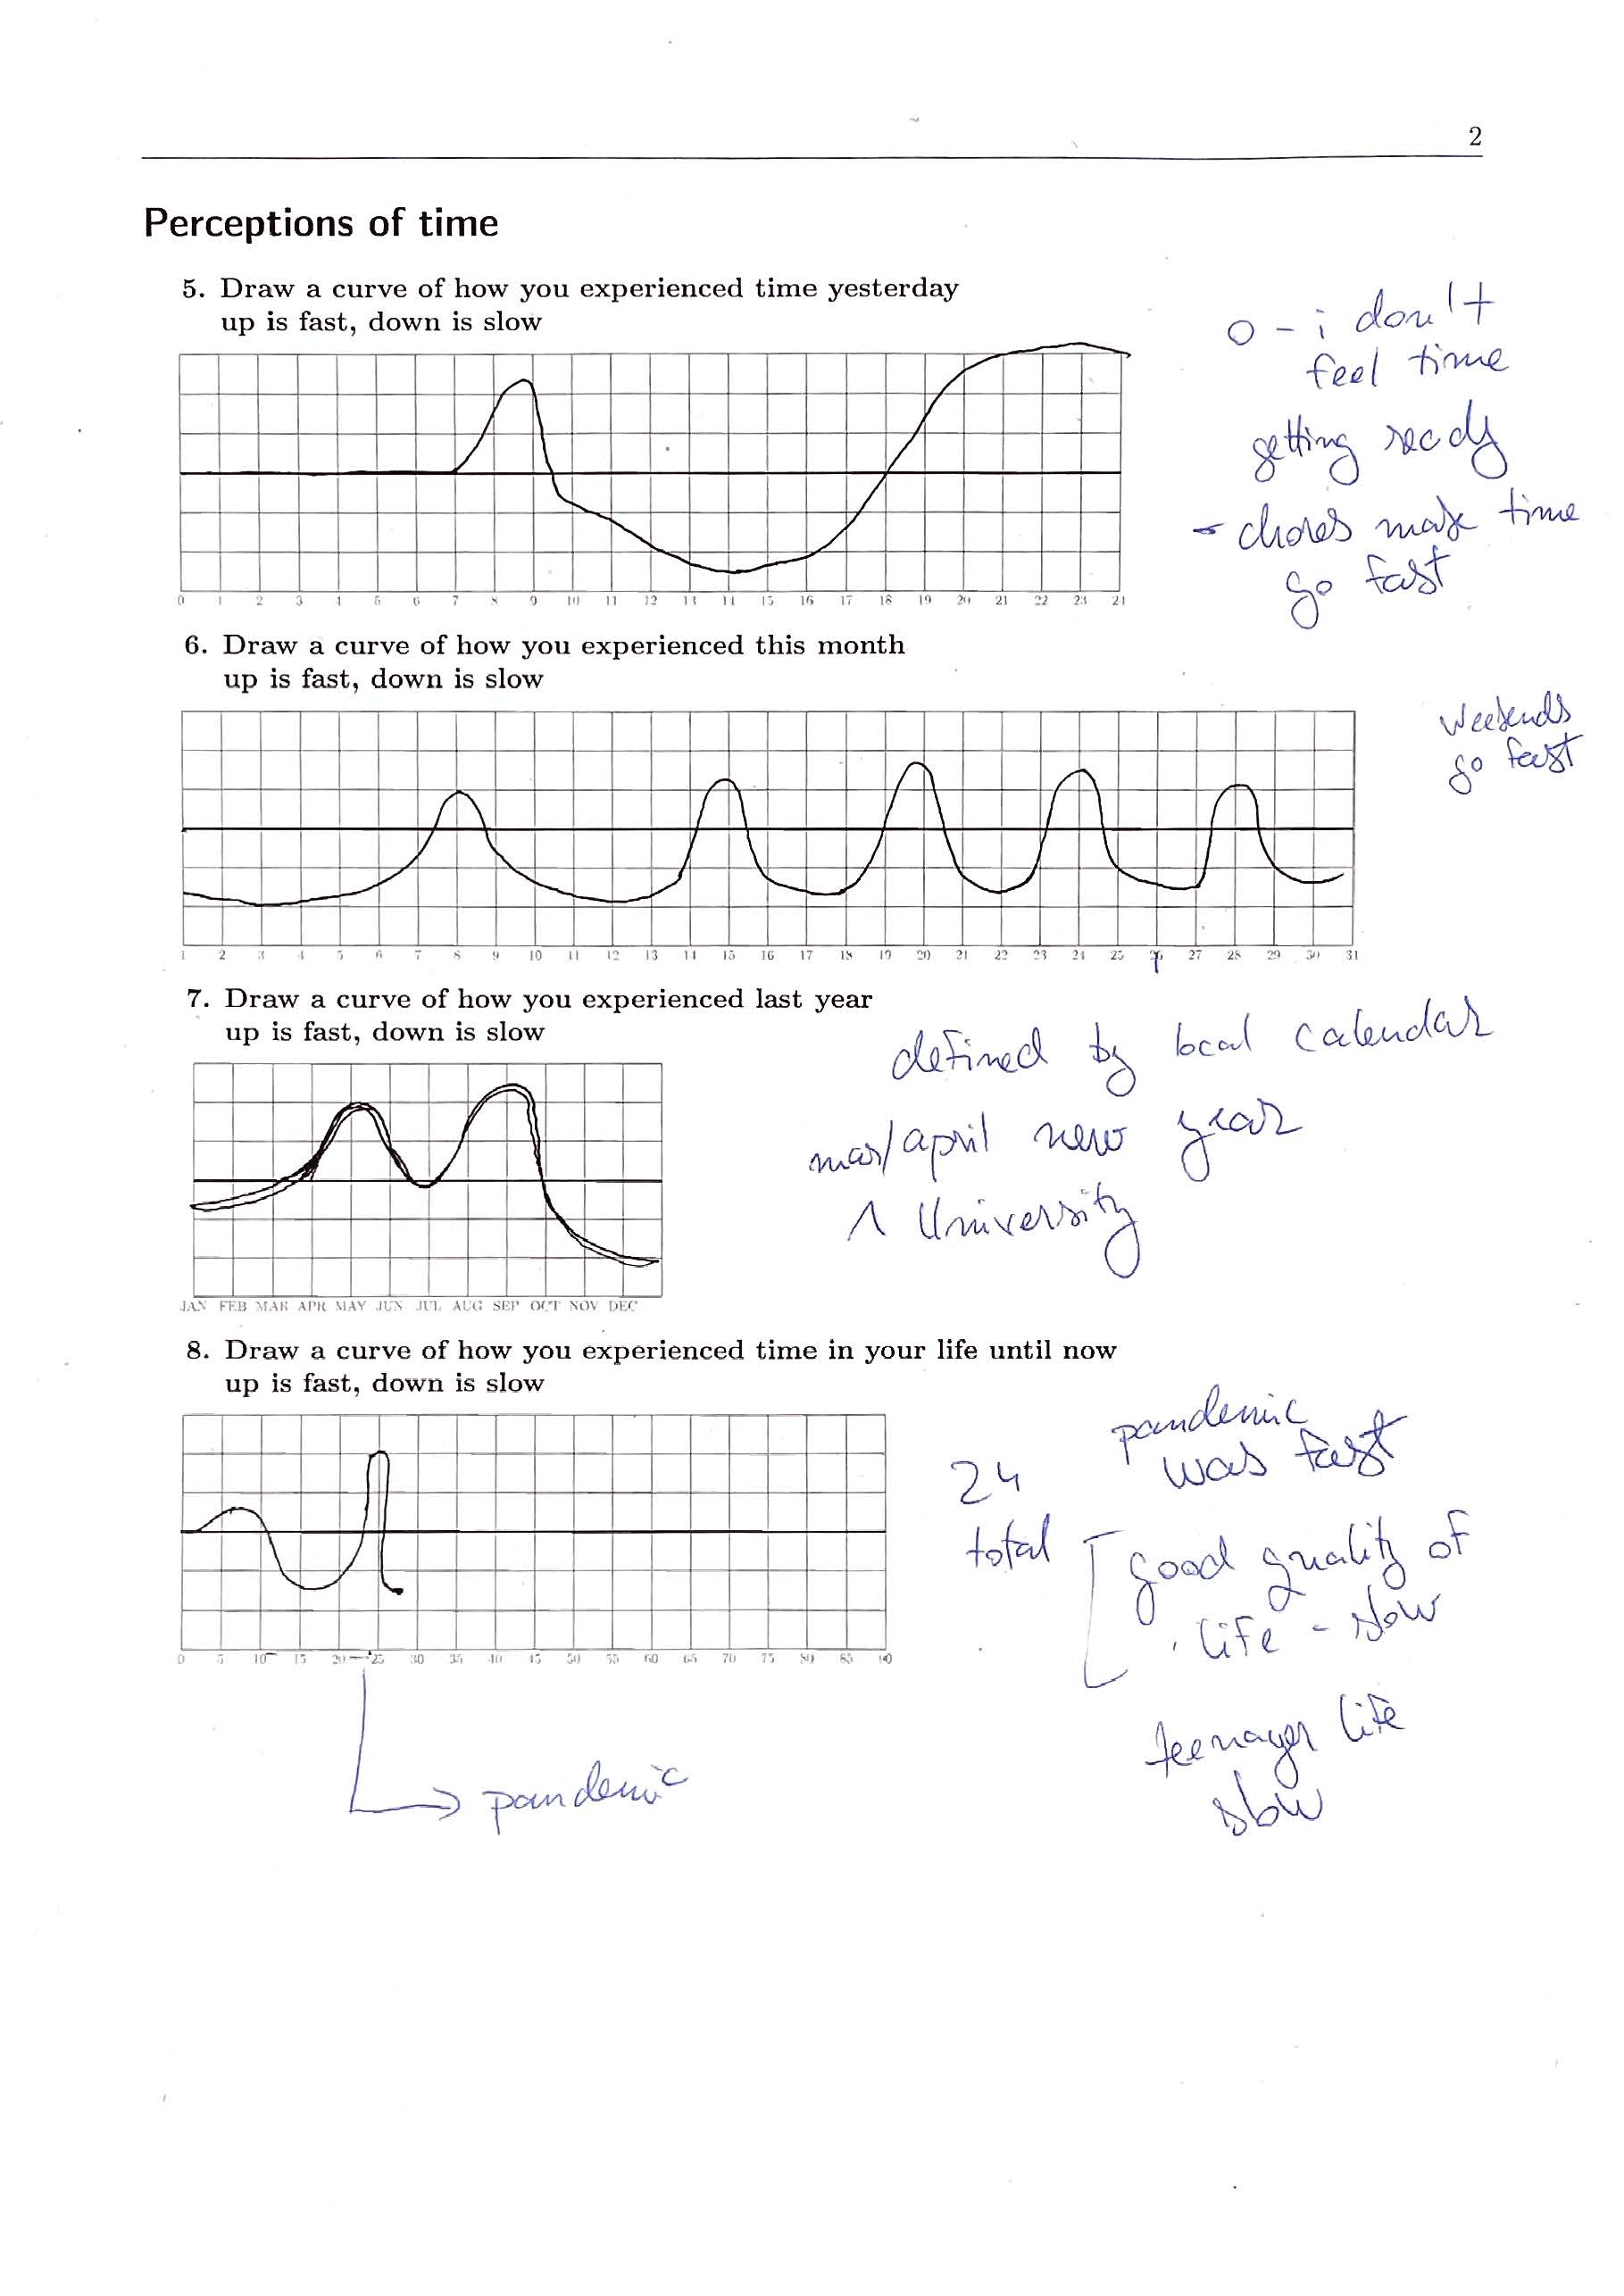 2
Perceptions of time
5. Draw a curve of how you experienced time yesterday
up is fast, down is slow
0 1 2 3 4 5 6 7 8 9 10 11 12 13 14 15 16 17 18 19 20 21 22 23 24
0 - i don't
feel time
getting ready
- chores make time
go fast
6. Draw a curve of how you experienced this month
up is fast, down is slow
1 2 3 4 5 6 7 8 9 10 11 12 13 14 15 16 17 18 19 20 21 22 23 24 25 26 27 28 29 30 31
weekends
go fast
7. Draw a curve of how you experienced last year
up is fast, down is slow
JAN FEB MAR APR MAY JUN JUL AUG SEP OCT NOV DEC
defined by local calendar
mar/april new year
University
8. Draw a curve of how you experienced time in your life until now
up is fast, down is slow
0 5 10 15 20 25 30 35 40 45 50 55 60 65 70 75 80 85 90
pandemic
24
total
pandemic
was fast
good quality of
life - slow
teenager life
slow